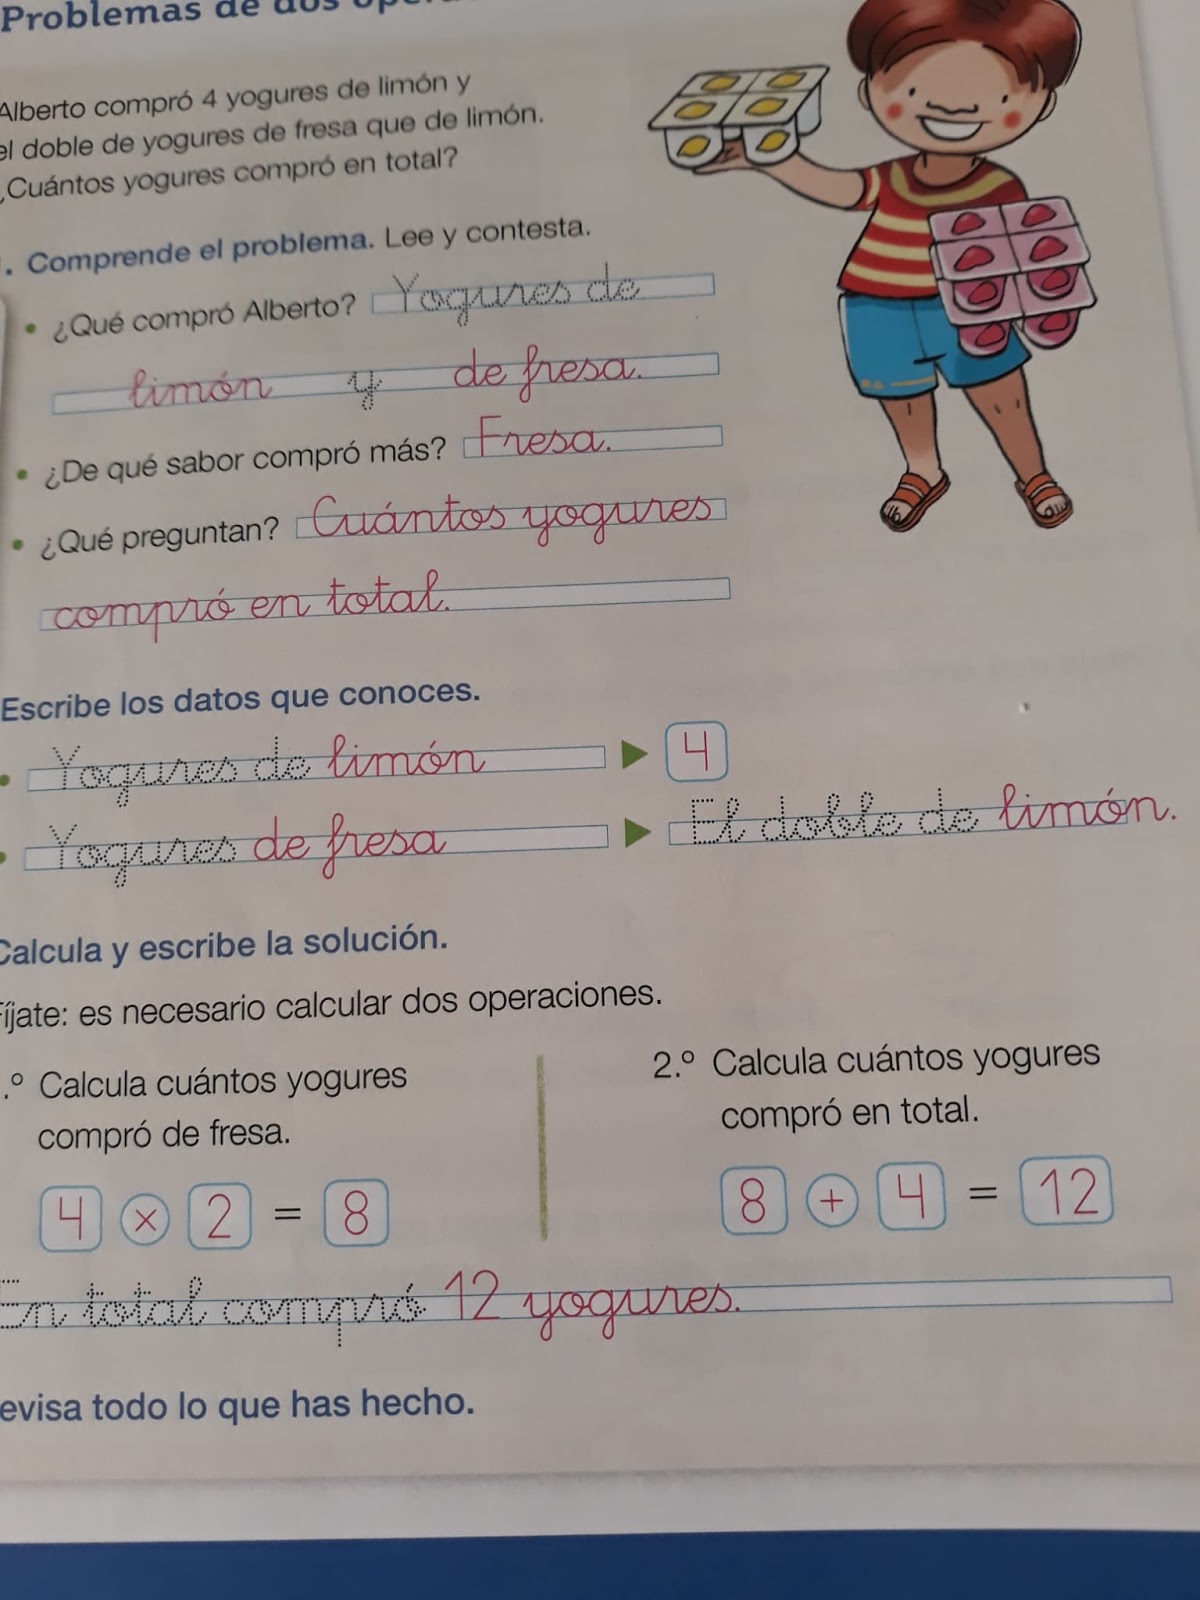 Problemas de dos
Alberto compró 4 yogures de limón y
el doble de yogures de fresa que de limón.
¿Cuántos yogures compró en total?
. Comprende el problema. Lee y contesta.
• ¿Qué compró Alberto? Yogures de
limón y de fresa.
• ¿De qué sabor compró más? Fresa.
• ¿Qué preguntan? Cuántos yogures
compró en total.
Escribe los datos que conoces.
• Yogures de limón ▶ 4
• Yogures de fresa ▶ El doble de limón.
Calcula y escribe la solución.
Fíjate: es necesario calcular dos operaciones.
.º Calcula cuántos yogures
compró de fresa.
4 × 2 = 8
2.º Calcula cuántos yogures
compró en total.
8 + 4 = 12
En total compró 12 yogures.
evisa todo lo que has hecho.